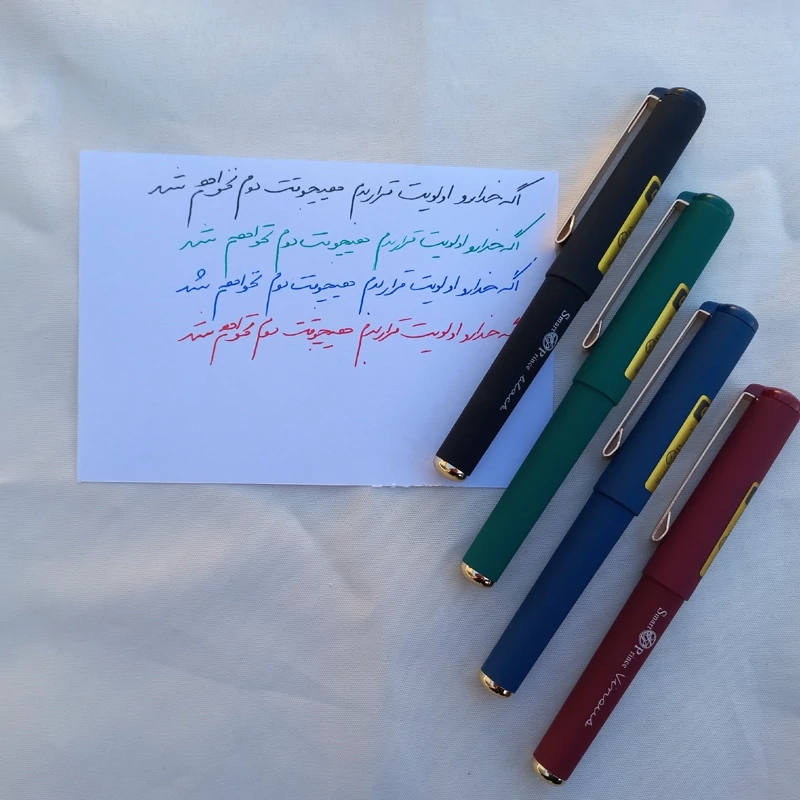 اگه خدارو اولویت قرار بدم هیچوقت دوم نخواهم شد
اگه خدارو اولویت قرار بدم هیچوقت دوم نخواهم شد
اگه خدارو اولویت قرار بدم هیچوقت دوم نخواهم شد
گه خدارو اولویت قرار بدم هیچوقت دوم نخواهم شد
Smart Prince black
Smart Prince Vinous